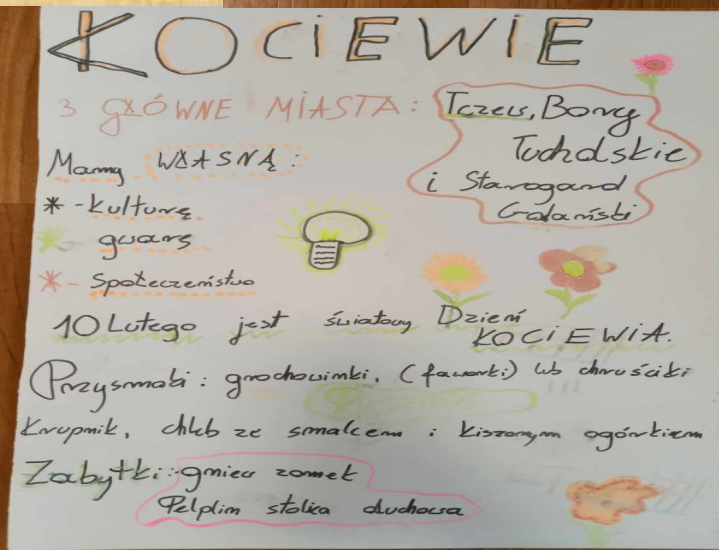 KOCIEWIE
3 GŁÓWNE MIASTA: Tczew, Bory
Tucholskie
i Starogard
Gdański
Mamy WŁASNĄ:
* - Kulturę
gwarę
* - Społeczeństwo
10 Lutego jest światowy Dzień
KOCIEWIA.
Przysmaki: grochowinki, (faworki) lub chruściki
Krupnik, chleb ze smalcem i kiszonym ogórkiem
Zabytki: - gniew zamek
Pelplin stolica duchowa